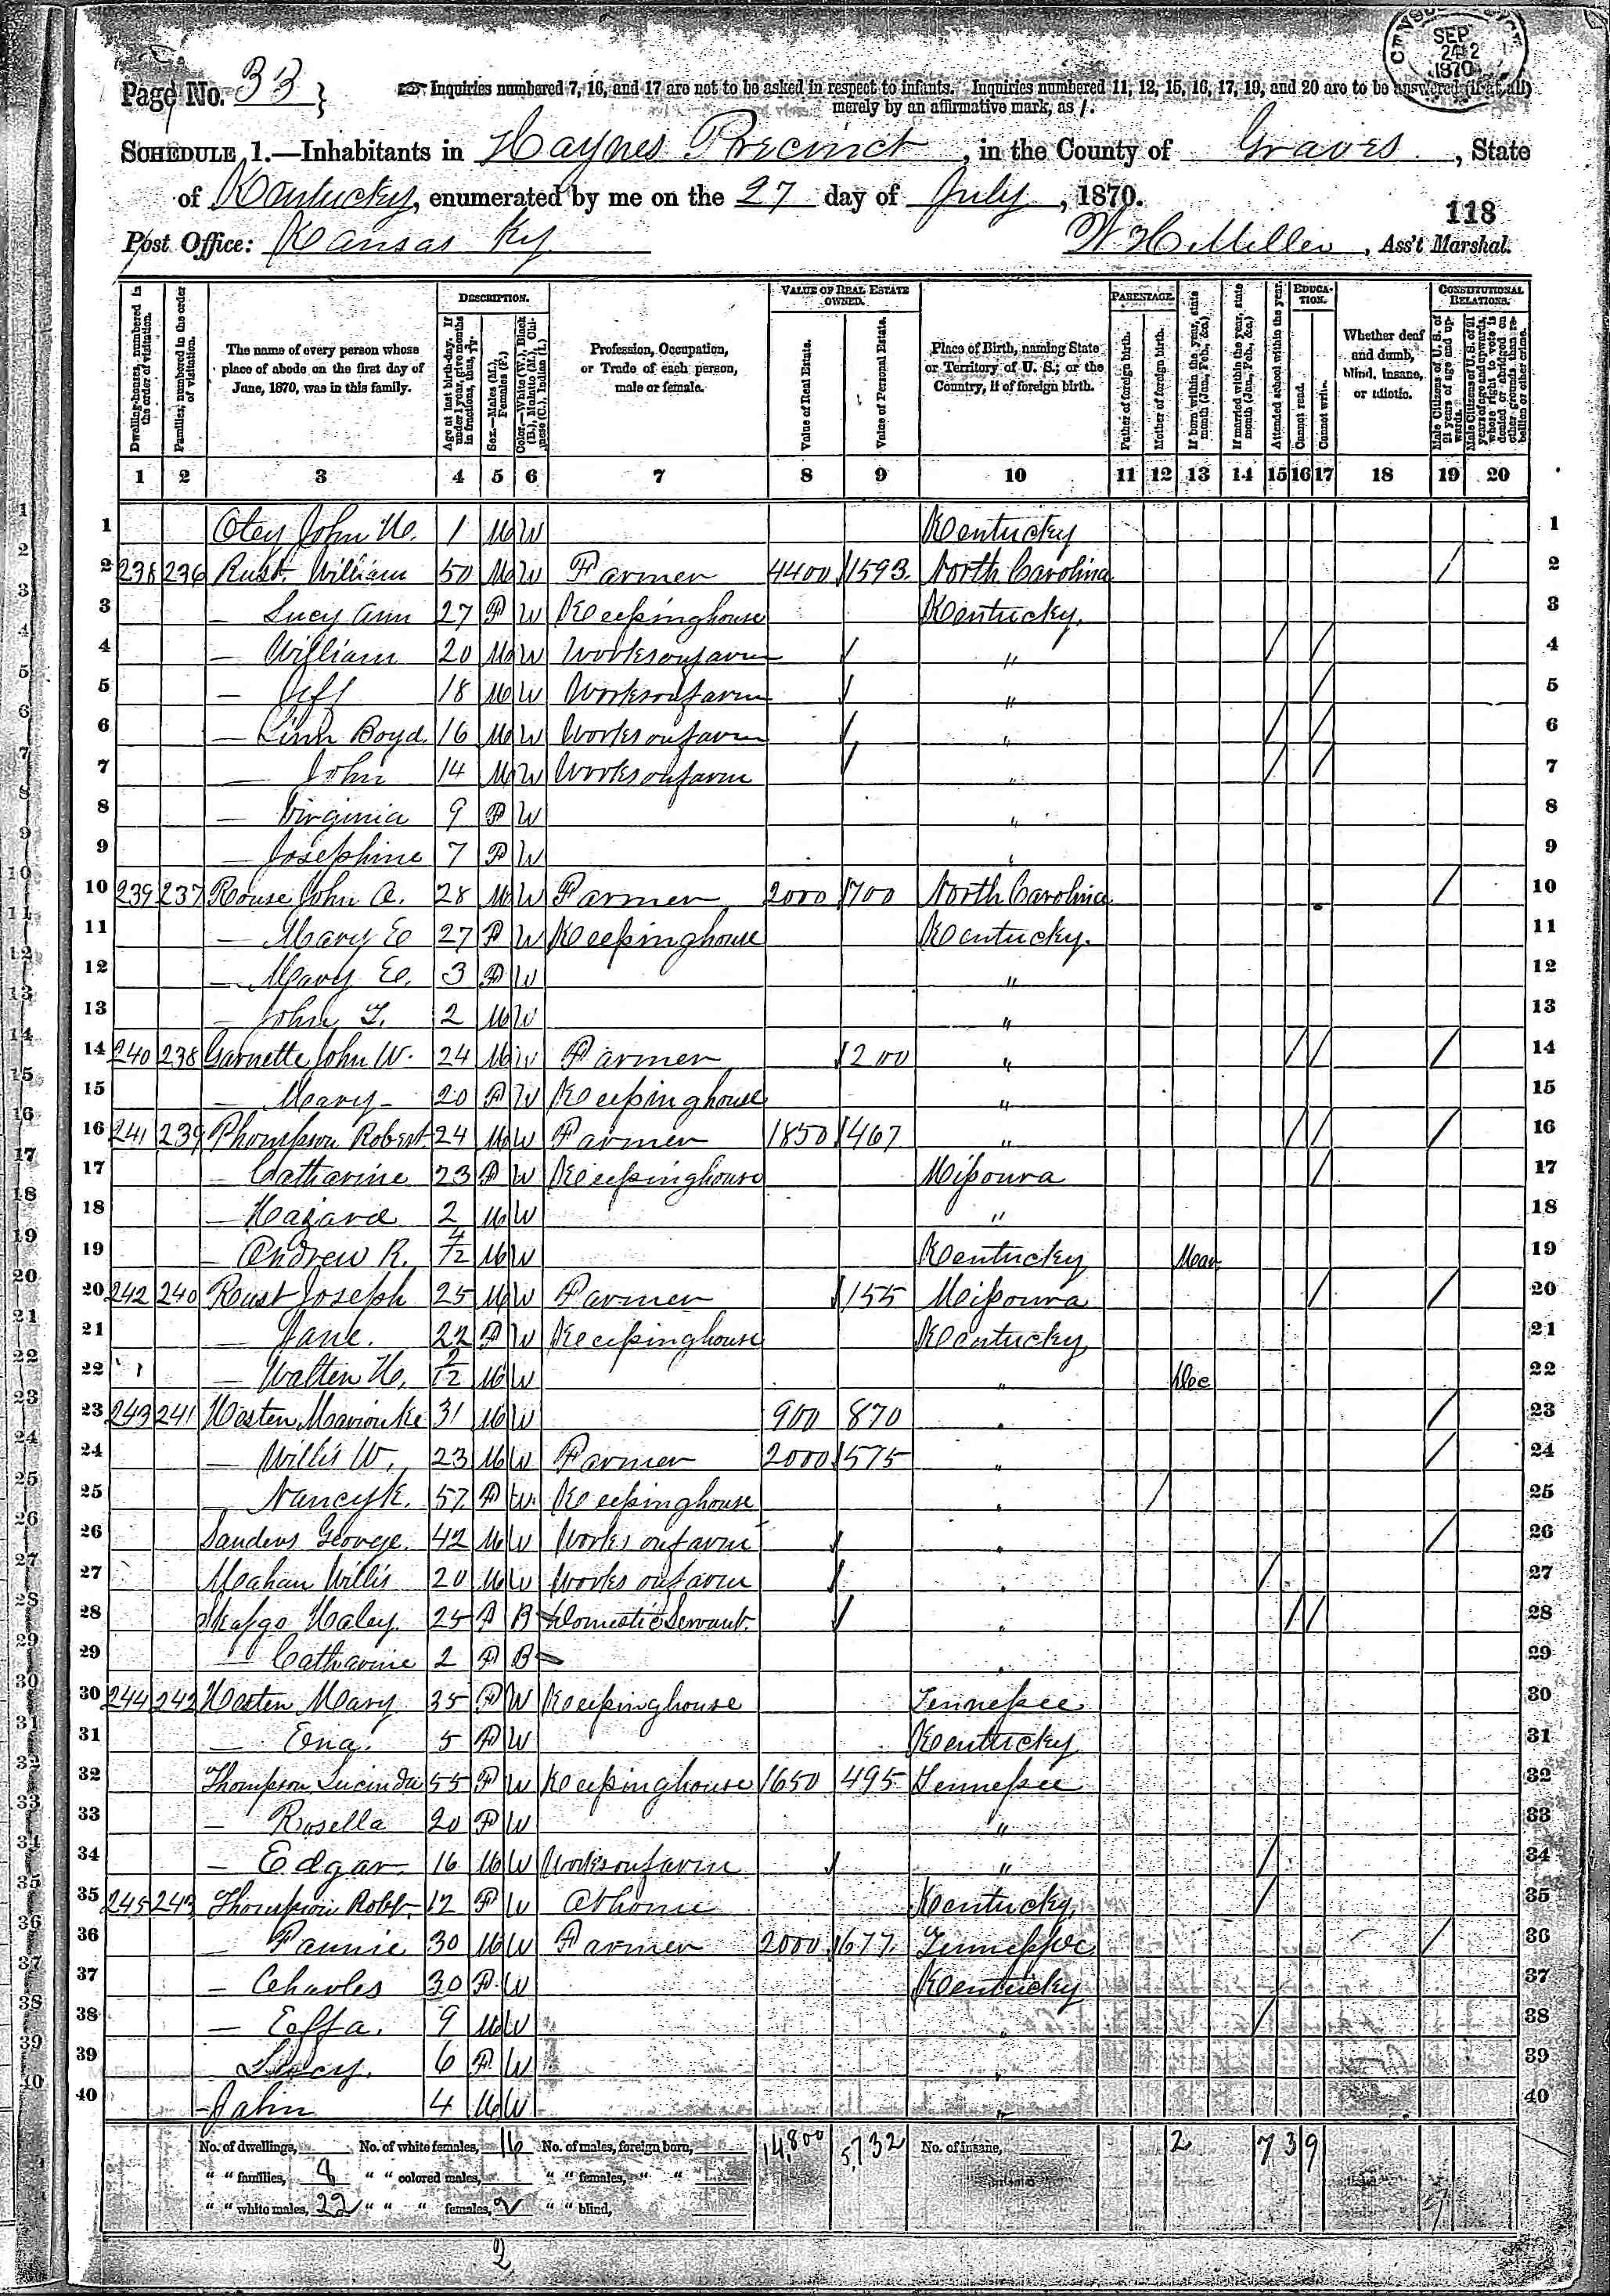 Page No. 33 }
Inquiries numbered 7, 16, and 17 are not to be asked in respect to infants. Inquiries numbered 11, 12, 15, 16, 17, 19, and 20 are to be answered (if at all)
merely by an affirmative mark, as /.
CENSUS OFFICE SEP 24 1870
SCHEDULE 1.—Inhabitants in Haynes Precinct, in the County of Graves, State
of Kentucky, enumerated by me on the 27 day of July, 1870.
118
Post Office: Kansas Ky W. H. Miller, Ass't Marshal.
Dwelling-houses, numbered in the order of visitation.
Families, numbered in the order of visitation.
The name of every person whose place of abode on the first day of June, 1870, was in this family.
DESCRIPTION.
Age at last birth-day. If under 1 year, give months in fractions, thus,
Sex.—Males (M.), Females (F.)
Color.—White (W.), Black (B.), Mulatto (M.), Chinese (C.), Indian (I.)
Profession, Occupation, or Trade of each person, male or female.
VALUE OF REAL ESTATE OWNED.
Value of Real Estate.
Value of Personal Estate.
Place of Birth, naming State or Territory of U. S.; or the Country, if of foreign birth.
PARENTAGE.
Father of foreign birth.
Mother of foreign birth.
If born within the year, state month (Jan., Feb., &c.)
If married within the year, state month (Jan., Feb., &c.)
Attended school within the year.
EDUCATION.
Cannot read.
Cannot write.
Whether deaf and dumb, blind, insane, or idiotic.
CONSTITUTIONAL RELATIONS.
Male Citizens of U. S. of 21 years of age and upwards.
Male Citizens of U. S. of 21 years of age and upwards, whose right to vote is denied or abridged on other grounds than rebellion or other crime.
1 2 3 4 5 6 7 8 9 10 11 12 13 14 15 16 17 18 19 20
1 Otey John H. 1 M W Kentucky 1
2 238 236 Rust William 50 M W Farmer 4400 1593 North Carolina / 2
3 — Lucy Ann 27 F W Keepinghouse Kentucky. 3
4 — William 20 M W Works on farm " / / 4
5 — Jeff 18 M W Works on farm " / 5
6 — Linn Boyd 16 M W Works on farm " / / 6
7 — John 14 M W Works on farm " / / 7
8 — Virginia 9 F W " 8
9 — Josephine 7 F W " 9
10 239 237 Rouse John A. 28 M W Farmer 2000 700 North Carolina / 10
11 — Mary E 27 F W Keepinghouse Kentucky. 11
12 — Mary E. 3 F W " 12
13 — John T. 2 M W " 13
14 240 238 Garnette John W. 24 M W Farmer 200 " / / / 14
15 — Mary 20 F W Keepinghouse " 15
16 241 239 Thompson Robert 24 M W Farmer 1850 467 " / / / 16
17 — Catharine 23 F W Keepinghouse Missoura / 17
18 — Hazard 2 M W " 18
19 — Andrew R. 4/12 M W Kentucky Mar 19
20 242 240 Rust Joseph 25 M W Farmer 155 Missoura / / 20
21 — Jane. 22 F W Keepinghouse Kentucky 21
22 — Walten H. 2/12 M W " Dec 22
23 243 241 Hesten 31 M W 900 870 " / 23
24 — Willis W. 23 M W Farmer 2000 575 " / 24
25 — Nancy K. 57 F W Keepinghouse " / 25
26 Sanders George 42 M W Works on farm " / 26
27 Mahan Willis 20 M W Works on farm " / 27
28 Haley 25 F B Domestic Servant " / / 28
29 — Catharine 2 F B " 29
30 244 242 Hesten Mary 35 F W Keepinghouse Tennessee 30
31 — 5 F W Kentucky 31
32 Thompson Lucinda 55 F W Keepinghouse 1650 495 Tennessee 32
33 — Rosella 20 F W " 33
34 — Edgar 16 M W Works on farm " / 34
35 245 243 Thompson Robt. 12 F W At home Kentucky / 35
36 — Fannie 30 M W Farmer 2000 677 Tennessee / 36
37 — Charles 30 F W Kentucky 37
38 — Effa. 9 M W " / 38
39 — Lucy. 6 F W " 39
40 — John 4 M W " 40
No. of dwellings, No. of white females, 16 No. of males, foreign born, 14,800 5,732 No. of insane, 2 7 3 9
" " families, 8 " " colored males, " " females, " "
" " white males, 22 " " " females, 2 " " blind,
2